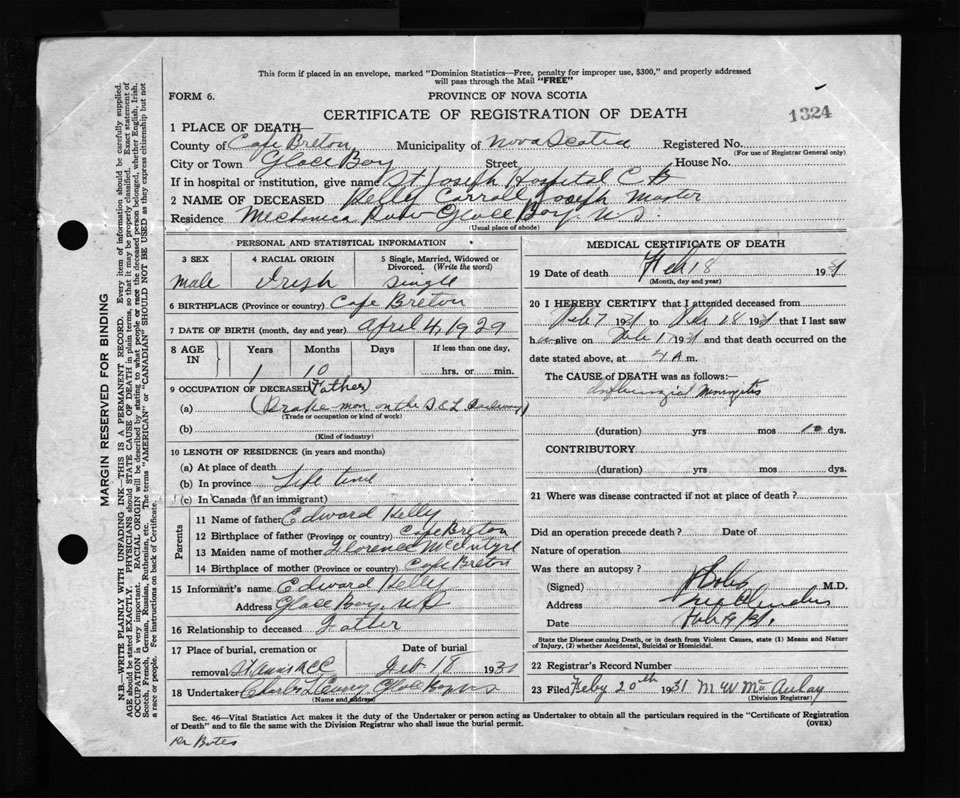 This form if placed in an envelope, marked "Dominion Statistics—Free, penalty for improper use, $300," and properly addressed
will pass through the Mail "FREE"
FORM 6.
PROVINCE OF NOVA SCOTIA
CERTIFICATE OF REGISTRATION OF DEATH
1324
1 PLACE OF DEATH—
County of Cape Breton Municipality of Nova Scotia Registered No.
(For use of Registrar General only)
City or Town Glace Bay Street House No.
If in hospital or institution, give name St Joseph Hospital C B
2 NAME OF DECEASED Kelly Carroll Joseph Master
Residence Glace Bay N.S.
(Usual place of abode)
PERSONAL AND STATISTICAL INFORMATION
3 SEX 4 RACIAL ORIGIN 5 Single, Married, Widowed or Divorced. (Write the word)
male Irish Single
6 BIRTHPLACE (Province or country) Cape Breton
7 DATE OF BIRTH (month, day and year) April 4, 1929
8 AGE IN Years Months Days If less than one day,
1 10 hrs. or min.
9 OCCUPATION OF DECEASED (Father)
(a) (Brake man on the S & L Railway)
(Trade or occupation or kind of work)
(b)
(Kind of industry)
10 LENGTH OF RESIDENCE (in years and months)
(a) At place of death
(b) In province Life time
(c) In Canada (if an immigrant)
Parents
11 Name of father Edward Kelly
12 Birthplace of father (Province or country) Cape Breton
13 Maiden name of mother Florence McIntyre
14 Birthplace of mother (Province or country) Cape Breton
15 Informant's name Edward Kelly
Address Glace Bay N S
16 Relationship to deceased Father
17 Place of burial, cremation or removal St Anns RCC
Date of burial Feb 18 1931
18 Undertaker Charles L Curry Glace Bay NS
(Name and address)
MEDICAL CERTIFICATE OF DEATH
19 Date of death Feb 18 1931
(Month, day and year)
20 I HEREBY CERTIFY that I attended deceased from
Feb 7 1931 to Feb 18 1931 that I last saw
h alive on Feb 1931 and that death occurred on the
date stated above, at 4 A m.
The CAUSE of DEATH was as follows:—
Influenzal Meningitis
(duration) yrs mos 10 dys.
CONTRIBUTORY
(duration) yrs mos dys.
21 Where was disease contracted if not at place of death?
Did an operation precede death? Date of
Nature of operation
Was there an autopsy?
(Signed) M.D.
Address
Date Feb 19 31.
State the Disease causing Death, or in death from Violent Causes, state (1) Means and Nature
of Injury, (2) whether Accidental, Suicidal or Homicidal.
22 Registrar's Record Number
23 Filed Feby 20th 1931 M W McAulay
(Division Registrar)
Sec. 46—Vital Statistics Act makes it the duty of the Undertaker or person acting as Undertaker to obtain all the particulars required in the "Certificate of Registration
of Death" and to file the same with the Division Registrar who shall issue the burial permit.
(OVER)
Dr Bates
MARGIN RESERVED FOR BINDING
N.B.—WRITE PLAINLY WITH UNFADING INK—THIS IS A PERMANENT RECORD. Every item of information should be carefully supplied.
AGE should be stated EXACTLY. PHYSICIANS should STATE CAUSE OF DEATH in plain terms, so that it may be properly classified. Exact statement of
OCCUPATION is very important. RACIAL ORIGIN will be described by stating to what people or race the deceased person belonged, whether English, Irish,
Scotch, French, German, Russian, Ruthenian, etc. The terms "AMERICAN" or "CANADIAN" SHOULD NOT BE USED as they express citizenship but not
a race or people. See instructions on back of Certificate.